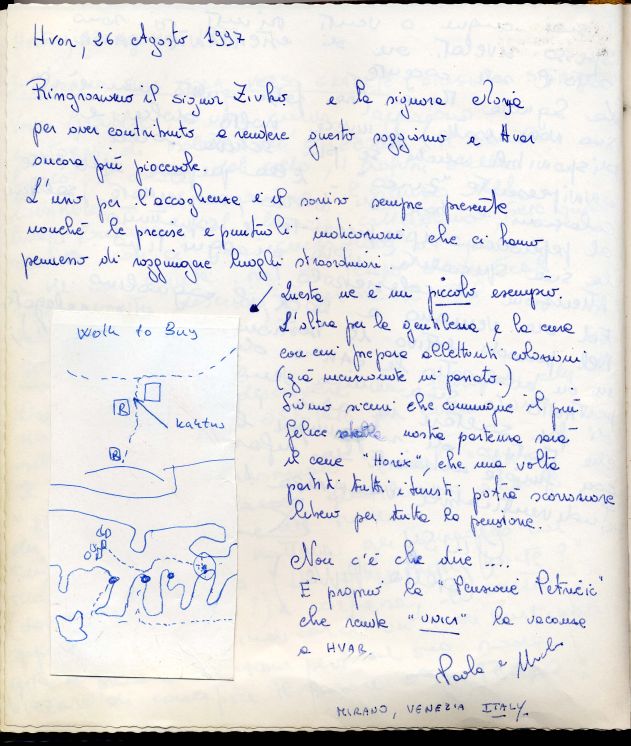 Hvar, 26 Agosto 1997
Ringraziamo il signor Zivko e la signora
per aver contribuito a rendere questo soggiorno a Hvar
ancora più piacevole.
L'uno per l'accoglienza e il sorriso sempre presente
nonché le precise e puntuali indicazioni che ci hanno
permesso di raggiungere luoghi straordinari.
Questa ne è un piccolo esempio.
L'altra per la gentilezza e la cura
con cui prepara allettanti colazioni
(già menzionate in passato.)
Siamo sicuri che comunque il più
felice nostra partenza sarà
il cane "Horik", che una volta
partiti tutti i turisti potrà scorazzare
libero per tutta la pensione.
Non c'è che dire ....
È proprio la "Pensione Petričić"
che rende "UNICI" la vacanza
a HVAR.
Paola e
MIRANO, VENEZIA ITALY
Walk to Buy
B
B